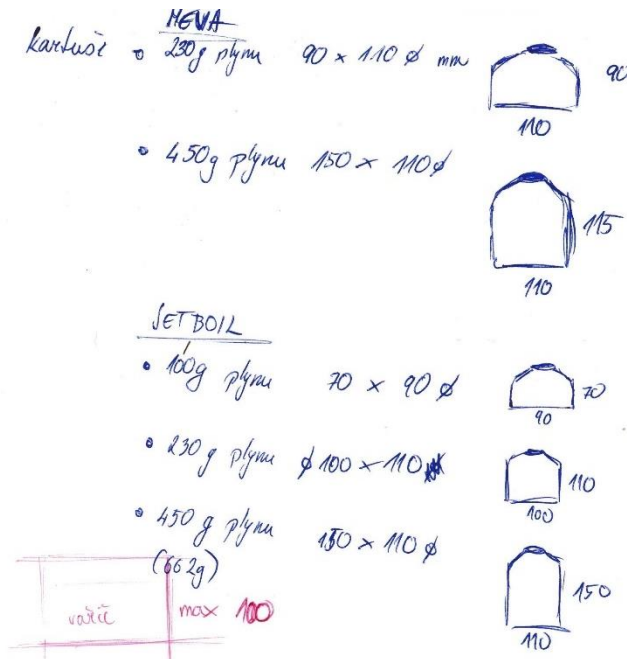 MEVA
kartuše • 230g plynu 90 x 110 ø mm
90
110
• 450g plynu 150 x 110 ø
115
110
JETBOIL
• 100g plynu 70 x 90 ø
70
90
• 230 g plynu ø 100 x 110
110
100
• 450 g plynu 150 x 110 ø
(662g)
150
110
vařič max 100